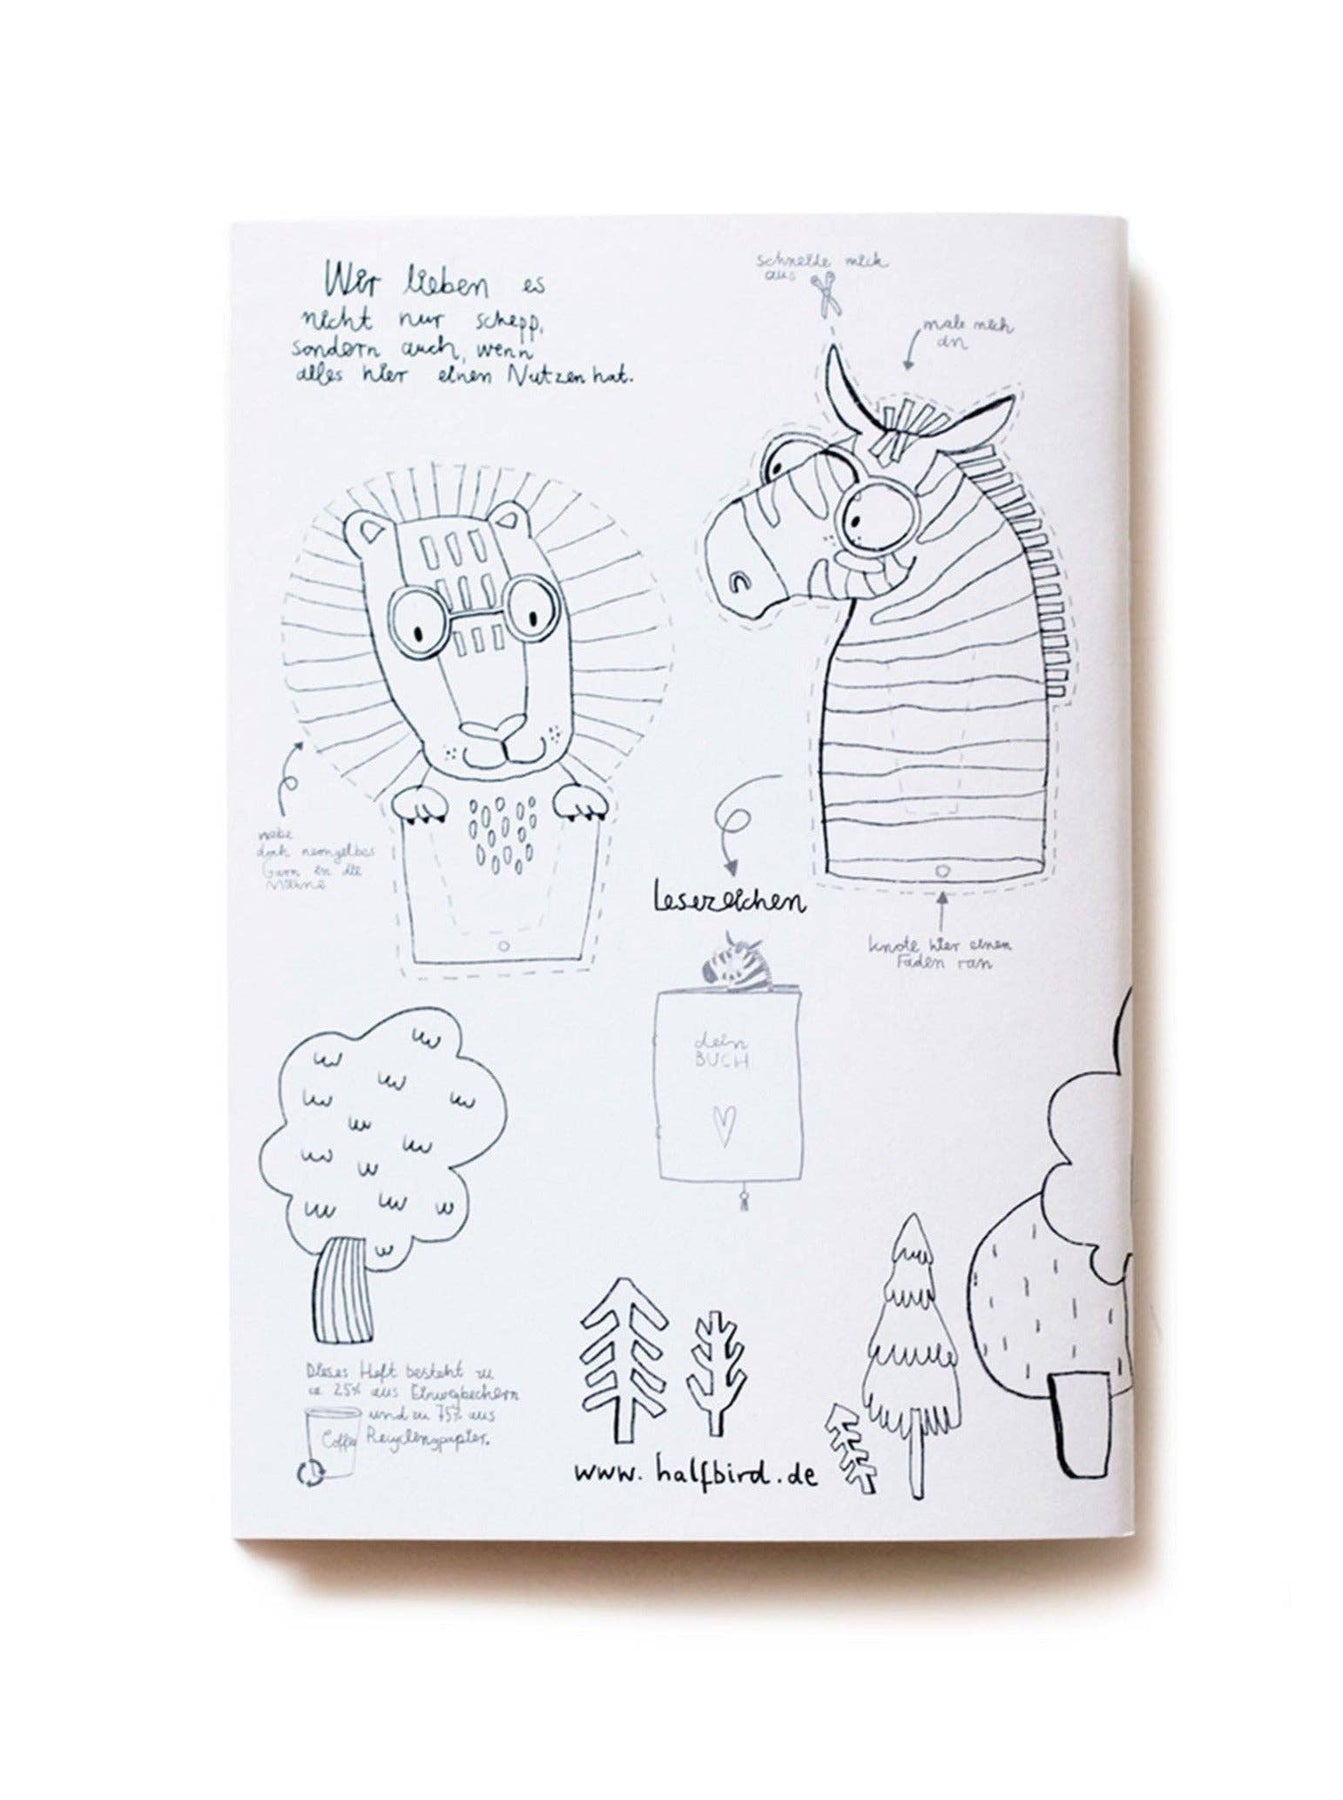 Wir lieben es
nicht nur schepp,
sondern auch, wenn
alles hier einen Nutzen hat.
schneide mich
aus
male mich
an
nähe
doch neongelbes
Garn in die
Mähne
Lesezeichen
knote hier einen
Faden ran
dein
BUCH
Dieses Heft besteht zu
ca 25% aus Einwegbechern
und zu 75% aus
Recyclingpapier.
Coffee
www.halfbird.de